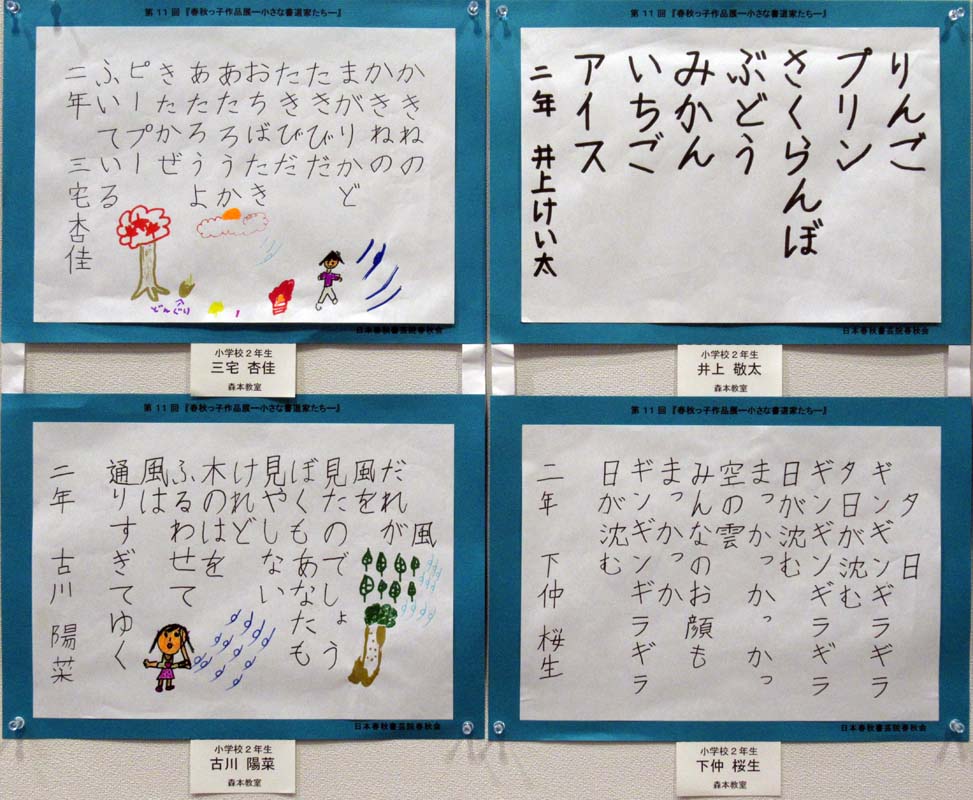 第11回『春秋っ子作品展ー小さな書道家たちー』
かきねの
かきねの
まがりかど
たきびだ
たきびだ
おちばたき
あたろうか
あたろうよ
きたかぜ
ピープー
ふいている
二年 三宅杏佳
どんぐり
日本春秋書芸院春秋会
小学校2年生
三宅 杏佳
森本教室
第11回『春秋っ子作品展ー小さな書道家たちー』
りんご
プリン
さくらんぼ
ぶどう
みかん
いちご
アイス
二年 井上けい太
日本春秋書芸院春秋会
小学校2年生
井上 敬太
森本教室
第11回『春秋っ子作品展ー小さな書道家たちー』
風
だれが
風を
見たのでしょう
ぼくもあなたも
見やしない
けれど
木のはを
ふるわせて
風は
通りすぎてゆく
二年 古川 陽菜
日本春秋書芸院春秋会
小学校2年生
古川 陽菜
森本教室
第11回『春秋っ子作品展ー小さな書道家たちー』
夕日
ギンギンギラギラ
夕日が沈む
ギンギンギラギラ
日が沈む
まっかっかっかっ
空の雲
みんなのお顔も
まっかっか
ギンギンギラギラ
日が沈む
二年 下仲 桜生
日本春秋書芸院春秋会
小学校2年生
下仲 桜生
森本教室